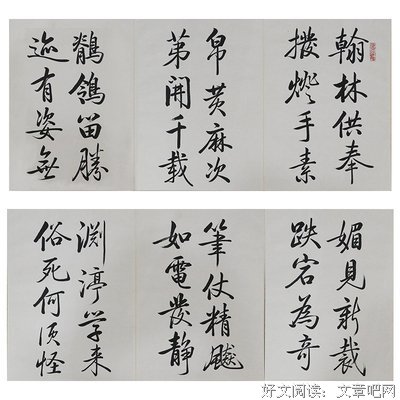 翰林供奉
撥燈手素
帛黄麻次
第開千载
鶺鴒留勝
迹有姿無
媚見新裁
跌宕為奇
筆仗精飈
如電發静
渊渟学来
俗死何须怪
好文阅读：文章吧网